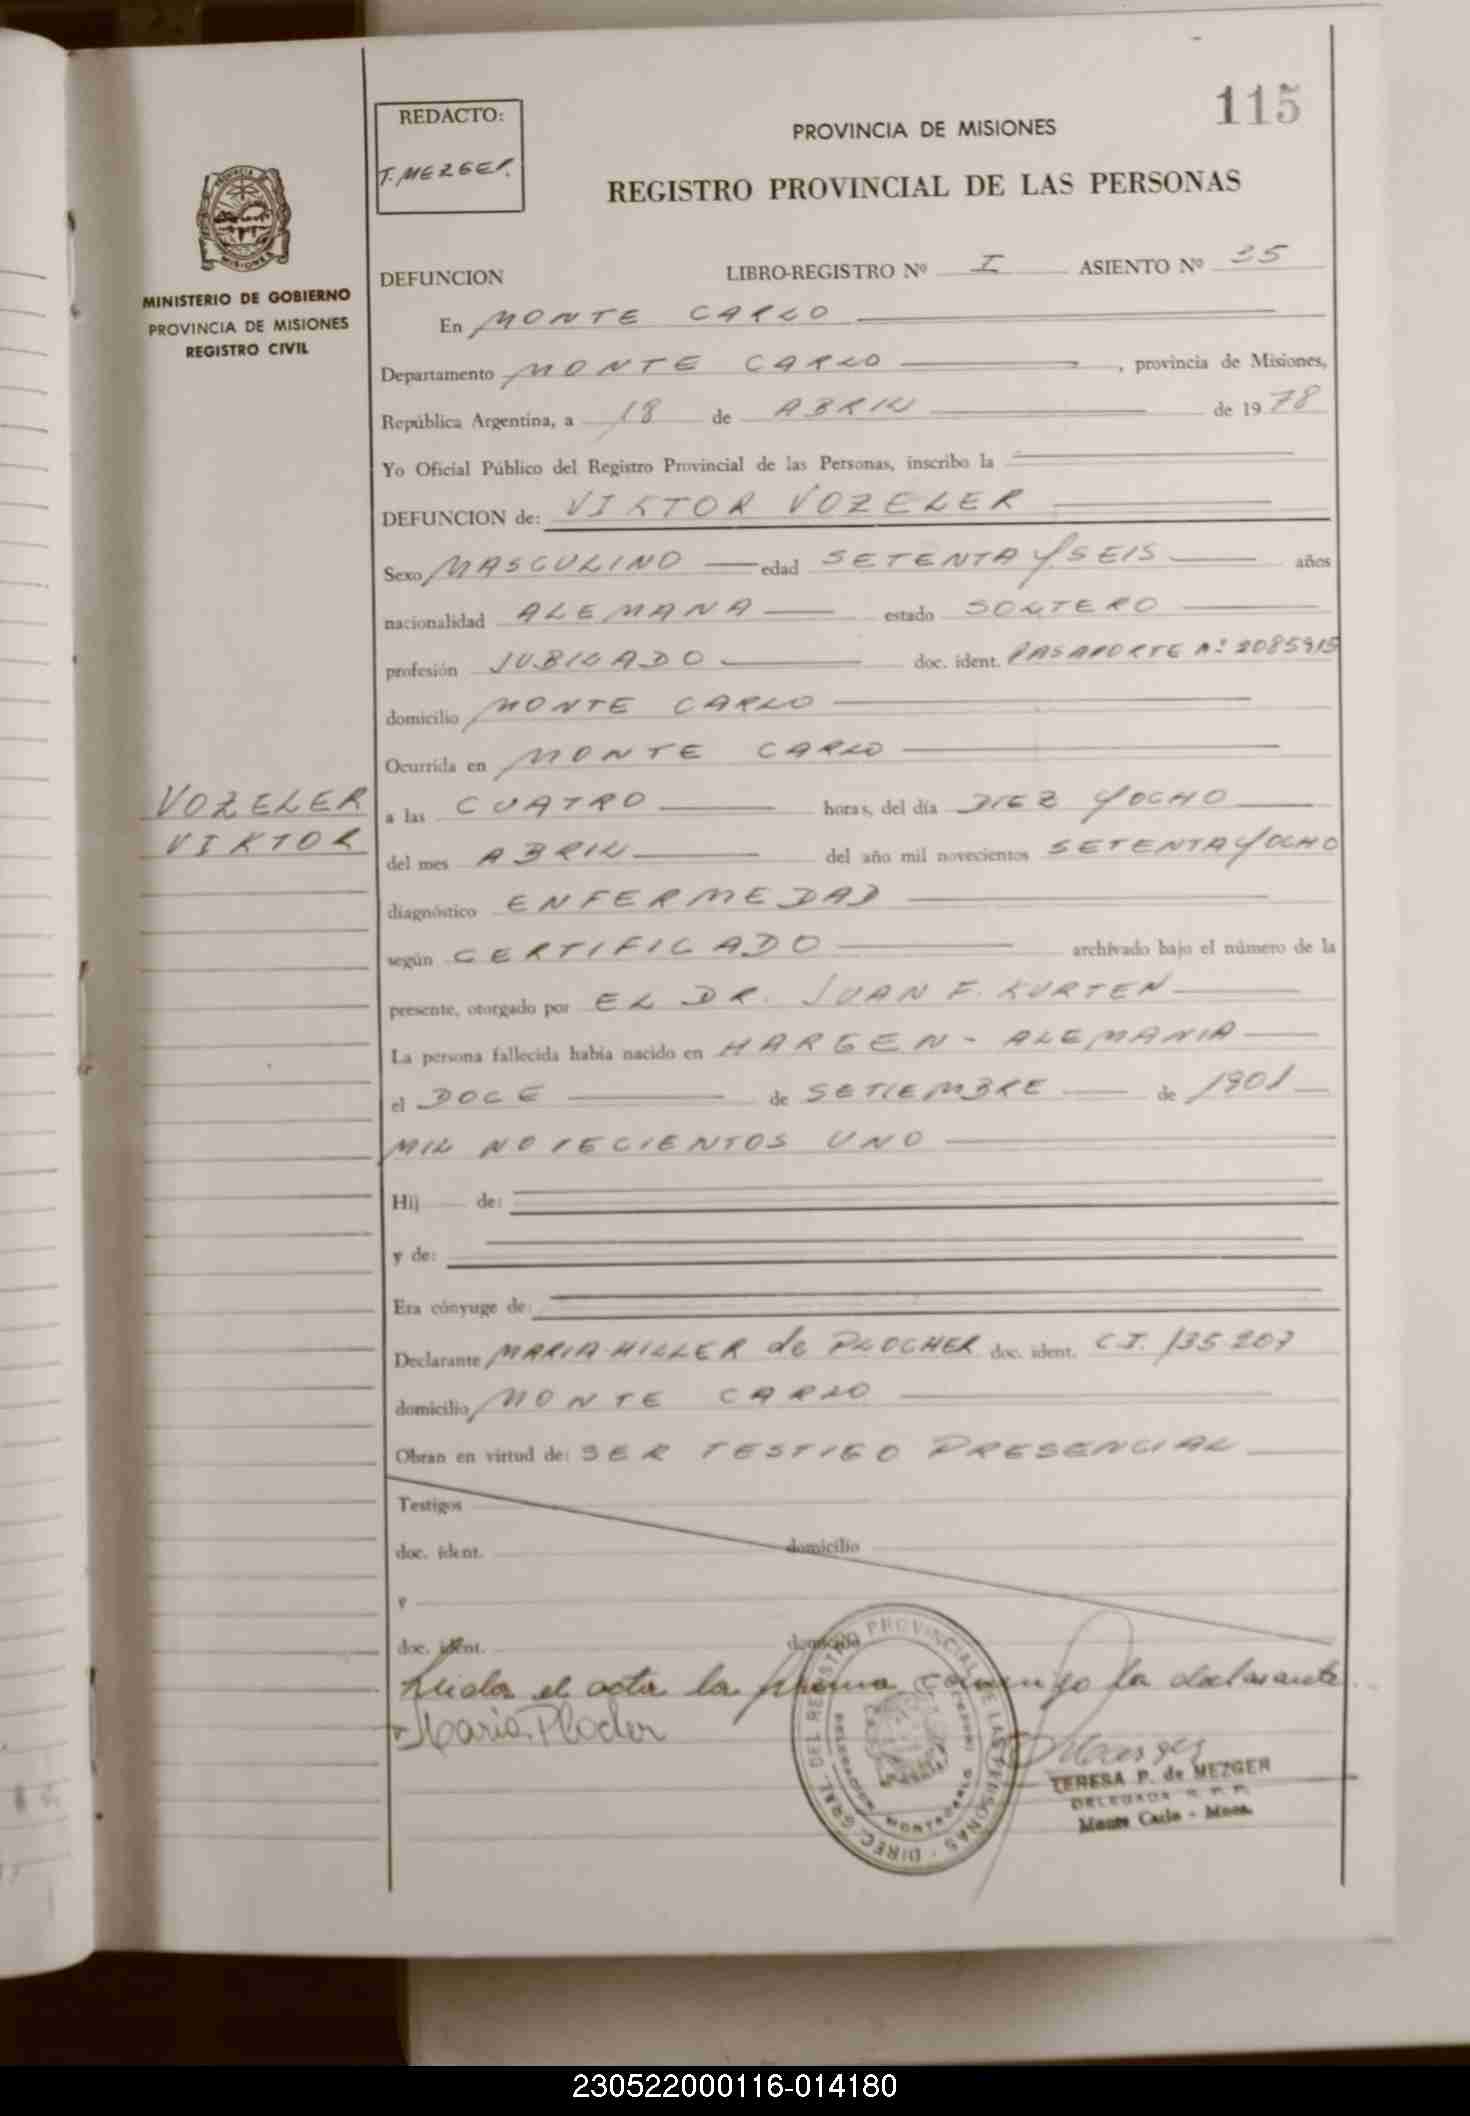 115
REDACTO:
T. MEZGER.
PROVINCIA DE MISIONES
REGISTRO PROVINCIAL DE LAS PERSONAS
MINISTERIO DE GOBIERNO
PROVINCIA DE MISIONES
REGISTRO CIVIL
DEFUNCION LIBRO-REGISTRO Nº I ASIENTO Nº 35
En MONTE CARLO
Departamento MONTE CARLO , provincia de Misiones,
República Argentina, a 18 de ABRIL de 1978
Yo Oficial Público del Registro Provincial de las Personas, inscribo la
DEFUNCION de: VIKTOR VOZELER
Sexo MASCULINO edad SETENTA Y SEIS años
nacionalidad ALEMANA estado SOLTERO
profesión JUBILADO doc. ident. PASAPORTE Nº 2085915
domicilio MONTE CARLO
Ocurrida en MONTE CARLO
VOZELER
VIKTOR
a las CUATRO horas, del día DIEZ Y OCHO
del mes ABRIL del año mil novecientos SETENTA Y OCHO
diagnóstico ENFERMEDAD
según CERTIFICADO archivado bajo el número de la
presente, otorgado por EL DR. JUAN F. KURTEN
La persona fallecida había nacido en HARGEN - ALEMANIA
el DOCE de SETIEMBRE de 1901
MIL NOVECIENTOS UNO
Hij de:
y de:
Era cónyuge de:
Declarante MARIA HILLER de PLOCHER doc. ident. C.I. 135.207
domicilio MONTE CARLO
Obran en virtud de: SER TESTIGO PRESENCIAL
Testigos
doc. ident. domicilio
y
doc. ident. domicilio
Leida el acta la firma conmigo la declarante
Maria Plocher
DIREC. GRAL. DEL REGISTRO PROVINCIAL DE LAS PERSONAS
MONTECARLO
TERESA P. de MEZGER
DELEGADA R. P. P.
Monte Carlo - Mnes.
230522000116-014180